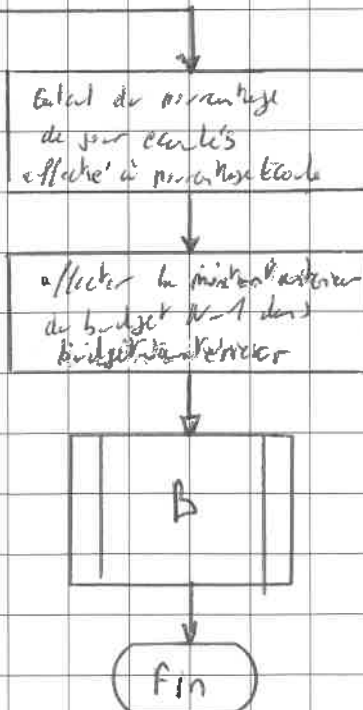 Calcul du pourcentage
de jour écoulés
affecté à pourcentageEcoule
affecter le montant antérieur
du budget N-1 dans
budget antérieur
B
Fin